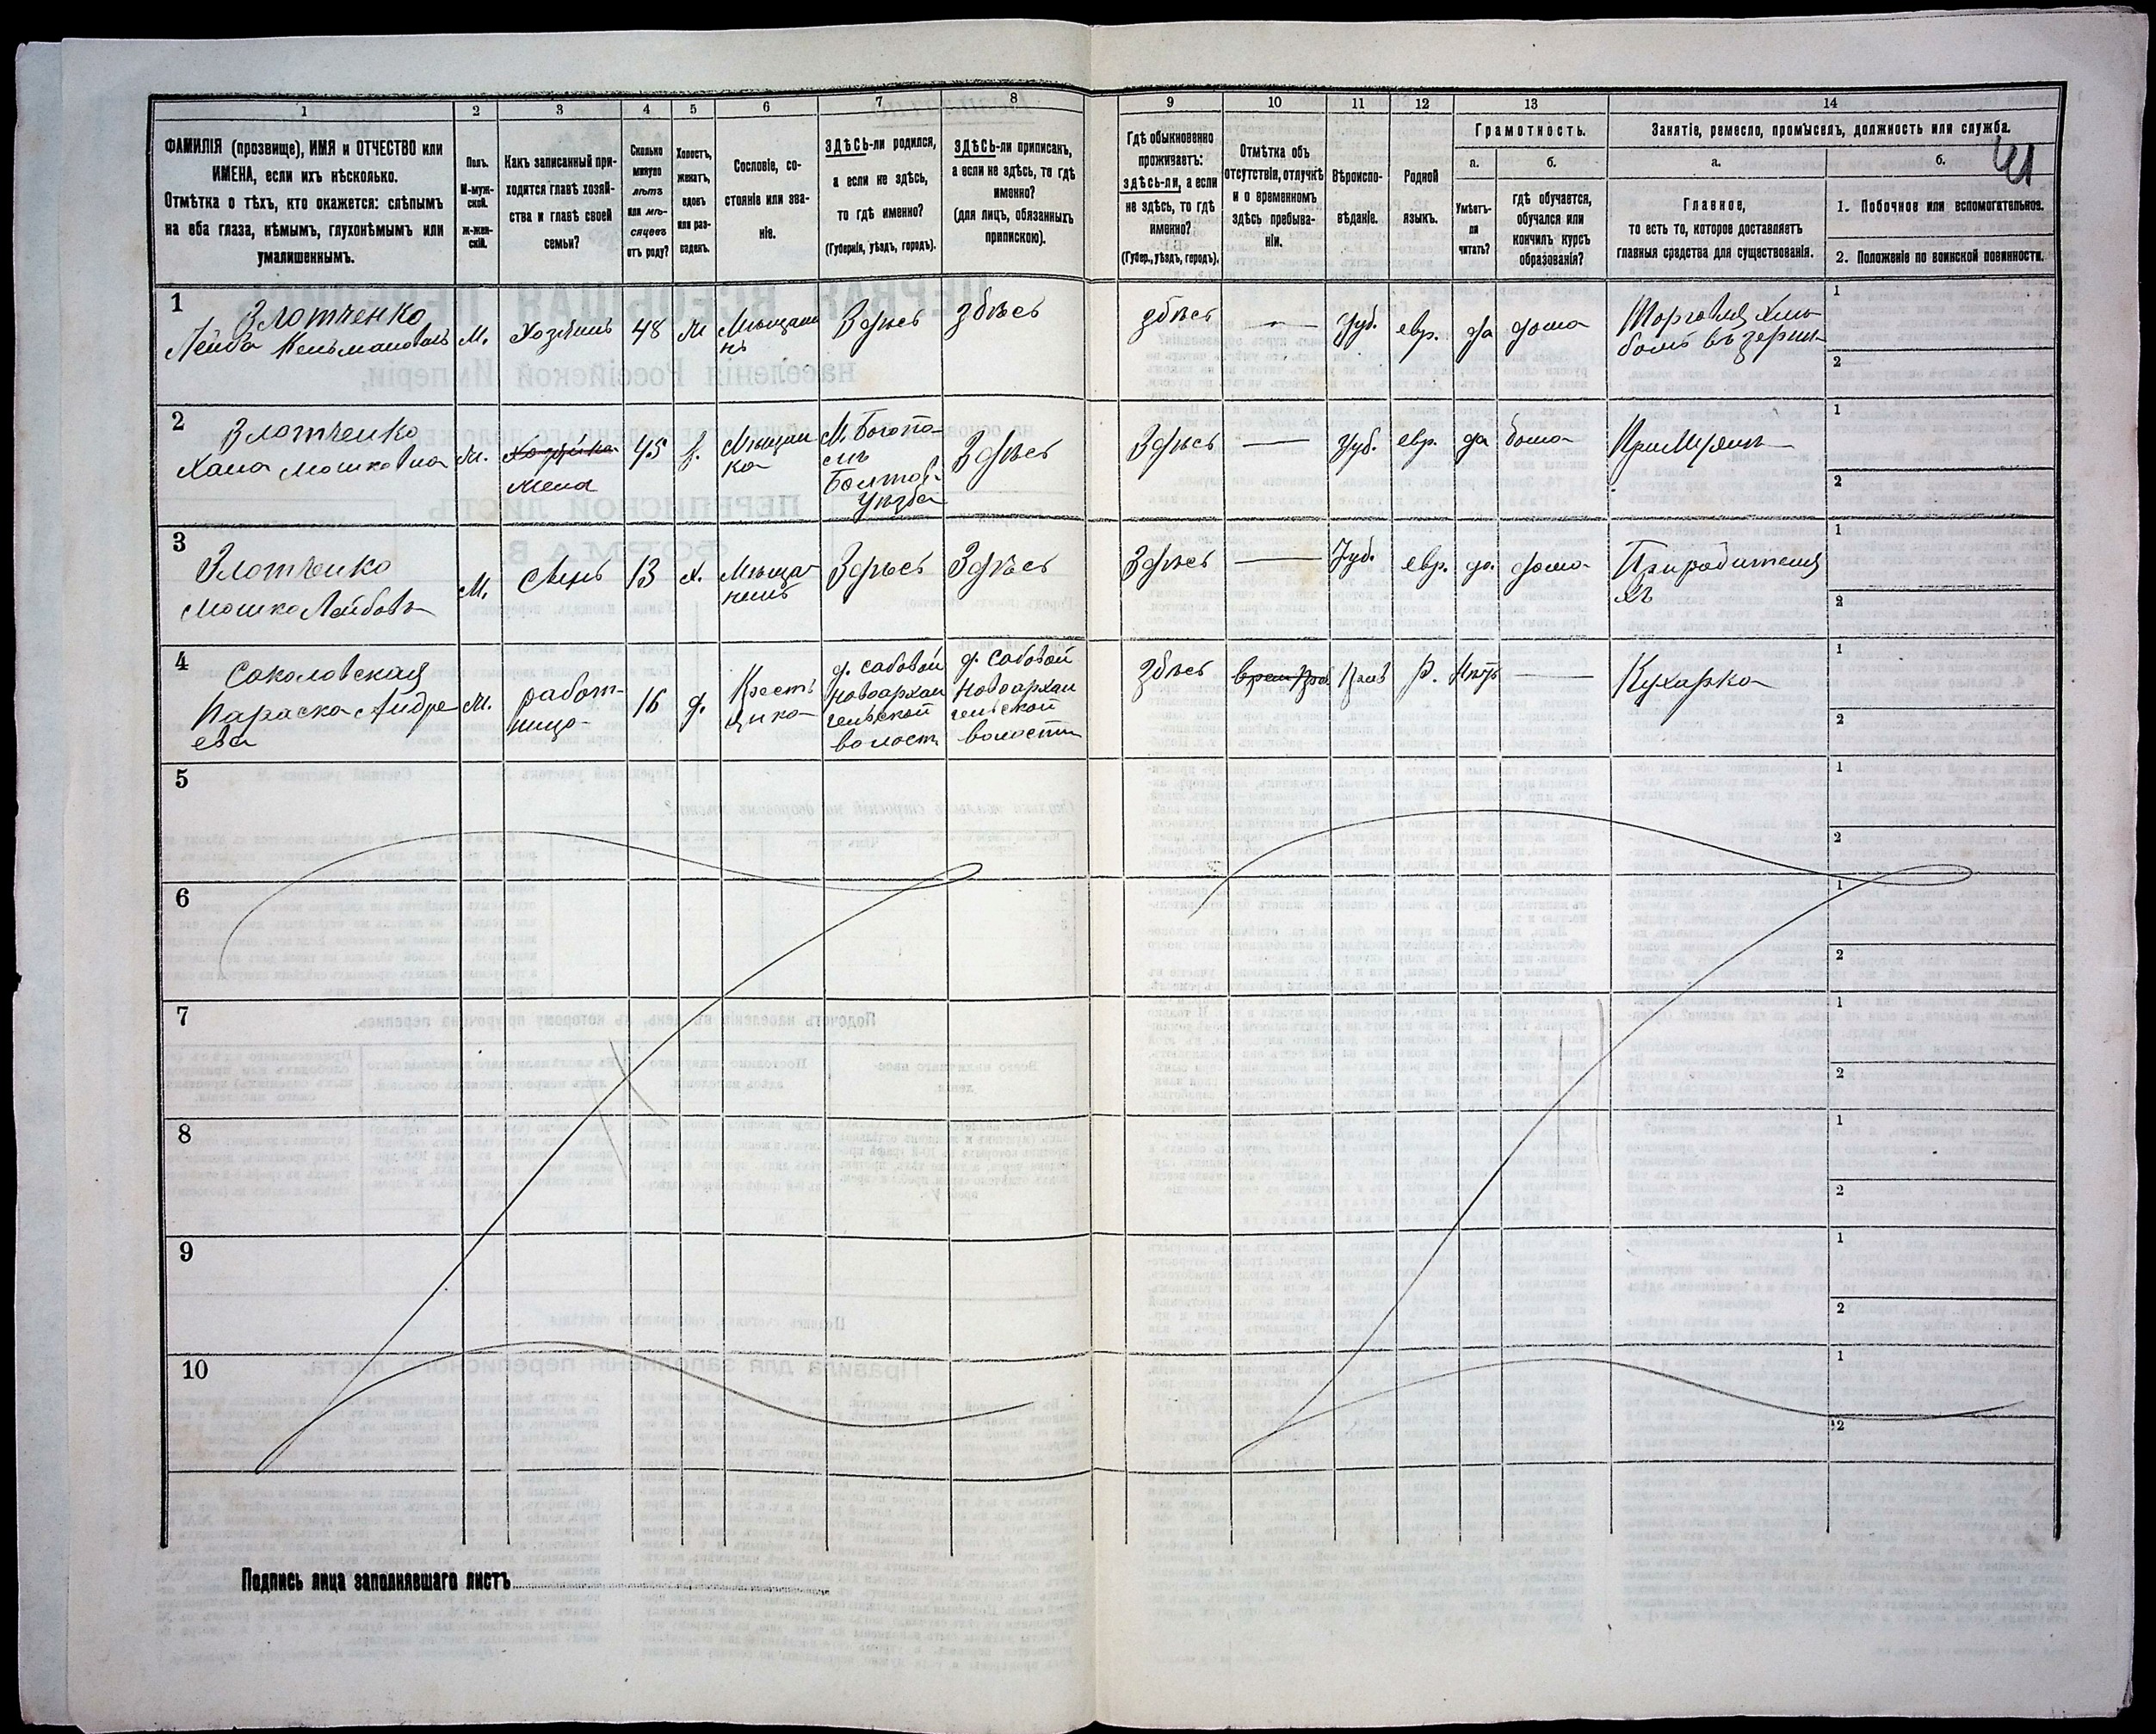 1 2 3 4 5 6 7 8 9 10 11 12 13 14
ФАМИЛІЯ (прозвище), ИМЯ и ОТЧЕСТВО или
ИМЕНА, если ихъ нѣсколько.
Отмѣтка о тѣхъ, кто окажется: слѣпымъ
на оба глаза, нѣмымъ, глухонѣмымъ или
умалишеннымъ.
Полъ.
М-муж-
ской.
ж-жен-
скій.
Какъ записанный при-
ходится главѣ хозяй-
ства и главѣ своей
семьи?
Сколько
минуло
лѣтъ
или мѣ-
сяцевъ
отъ роду?
Холостъ,
женатъ,
вдовъ
или раз-
веденъ.
Сословіе, со-
стояніе или зва-
ніе.
ЗДѢСЬ-ли родился,
а если не здѣсь,
то гдѣ именно?
(Губернія, уѣздъ, городъ).
ЗДѢСЬ-ли приписанъ,
а если не здѣсь, то гдѣ
именно?
(для лицъ, обязанныхъ
припискою).
Гдѣ обыкновенно
проживаетъ:
здѣсь-ли, а если
не здѣсь, то гдѣ
именно?
(Губер., уѣздъ, городъ).
Отмѣтка объ
отсутствіи, отлучкѣ
и о временномъ
здѣсь пребыва-
ніи.
Вѣроиспо-
вѣданіе.
Родной
языкъ.
Грамотность.
а.
Умѣетъ-
ли
читать?
б.
гдѣ обучается,
обучался или
кончилъ курсъ
образованія?
Занятіе, ремесло, промыселъ, должность или служба.
а.
Главное,
то есть то, которое доставляетъ
главныя средства для существованія.
б.
41
1. Побочное или вспомогательное.
2. Положеніе по воинской повинности.
1
Злотченко
Лейба Кельмановъ
М.
Хозяинъ
48
Ж
Мѣщани
нъ
Здѣсь
здѣсь
здѣсь
—
Іуд.
евр.
да
дома
Торговля хлѣ
бомъ въ зерны
1
2
2
Злотченко
Хана Мошковна
М.
Хозяйка
Жена
45
Мѣщан
ка
М. Богопо
ль
Балтск.
Уѣзда
Здѣсь
Здѣсь
—
Іуд.
евр.
да
дома
При Мужѣ
1
2
3
Злотченко
Мошко Лейбовъ
М.
Сынъ
13
х.
Мѣща
нинъ
Здѣсь
Здѣсь
Здѣсь
—
Іуд.
евр.
да.
дома
При родителя
хъ
1
2
4
Соколовская
Параска Андре
ева
М.
работ-
ница
16
д.
Кресть
янка
д. Садовой
Новоархан
гельской
волости
д. Садовой
Новоархан
гельской
волости
здѣсь
Прав
Р.
Нѣтъ
—
Кухарка
1
2
5
1
2
6
1
2
7
1
2
8
1
2
9
1
2
10
1
2
Подпись лица заполнявшаго листъ